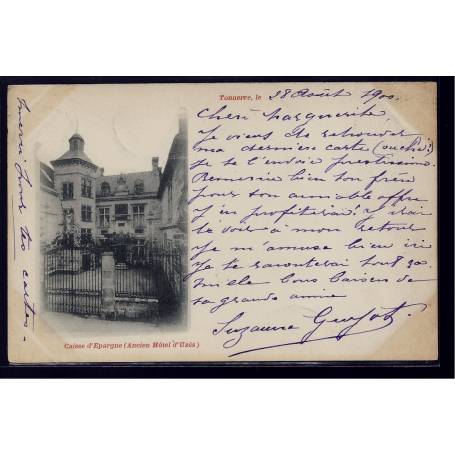 Tonnerre, le 28 Août 1900
Chère Marguerite
Je viens de retrouver
ma dernière carte (ouche!)
je te l'envoie
Remercie bien ton frère
pour son aimable offre
j'en profiterai! J'irai
le voir à mon retour
je m'amuse bien ici
je te raconterai tout ça.
mille bons baisers de
ta grande amie
Suzanne Guyot
merci pour tes cartes
Caisse d'Epargne (Ancien Hôtel d'Uzès)